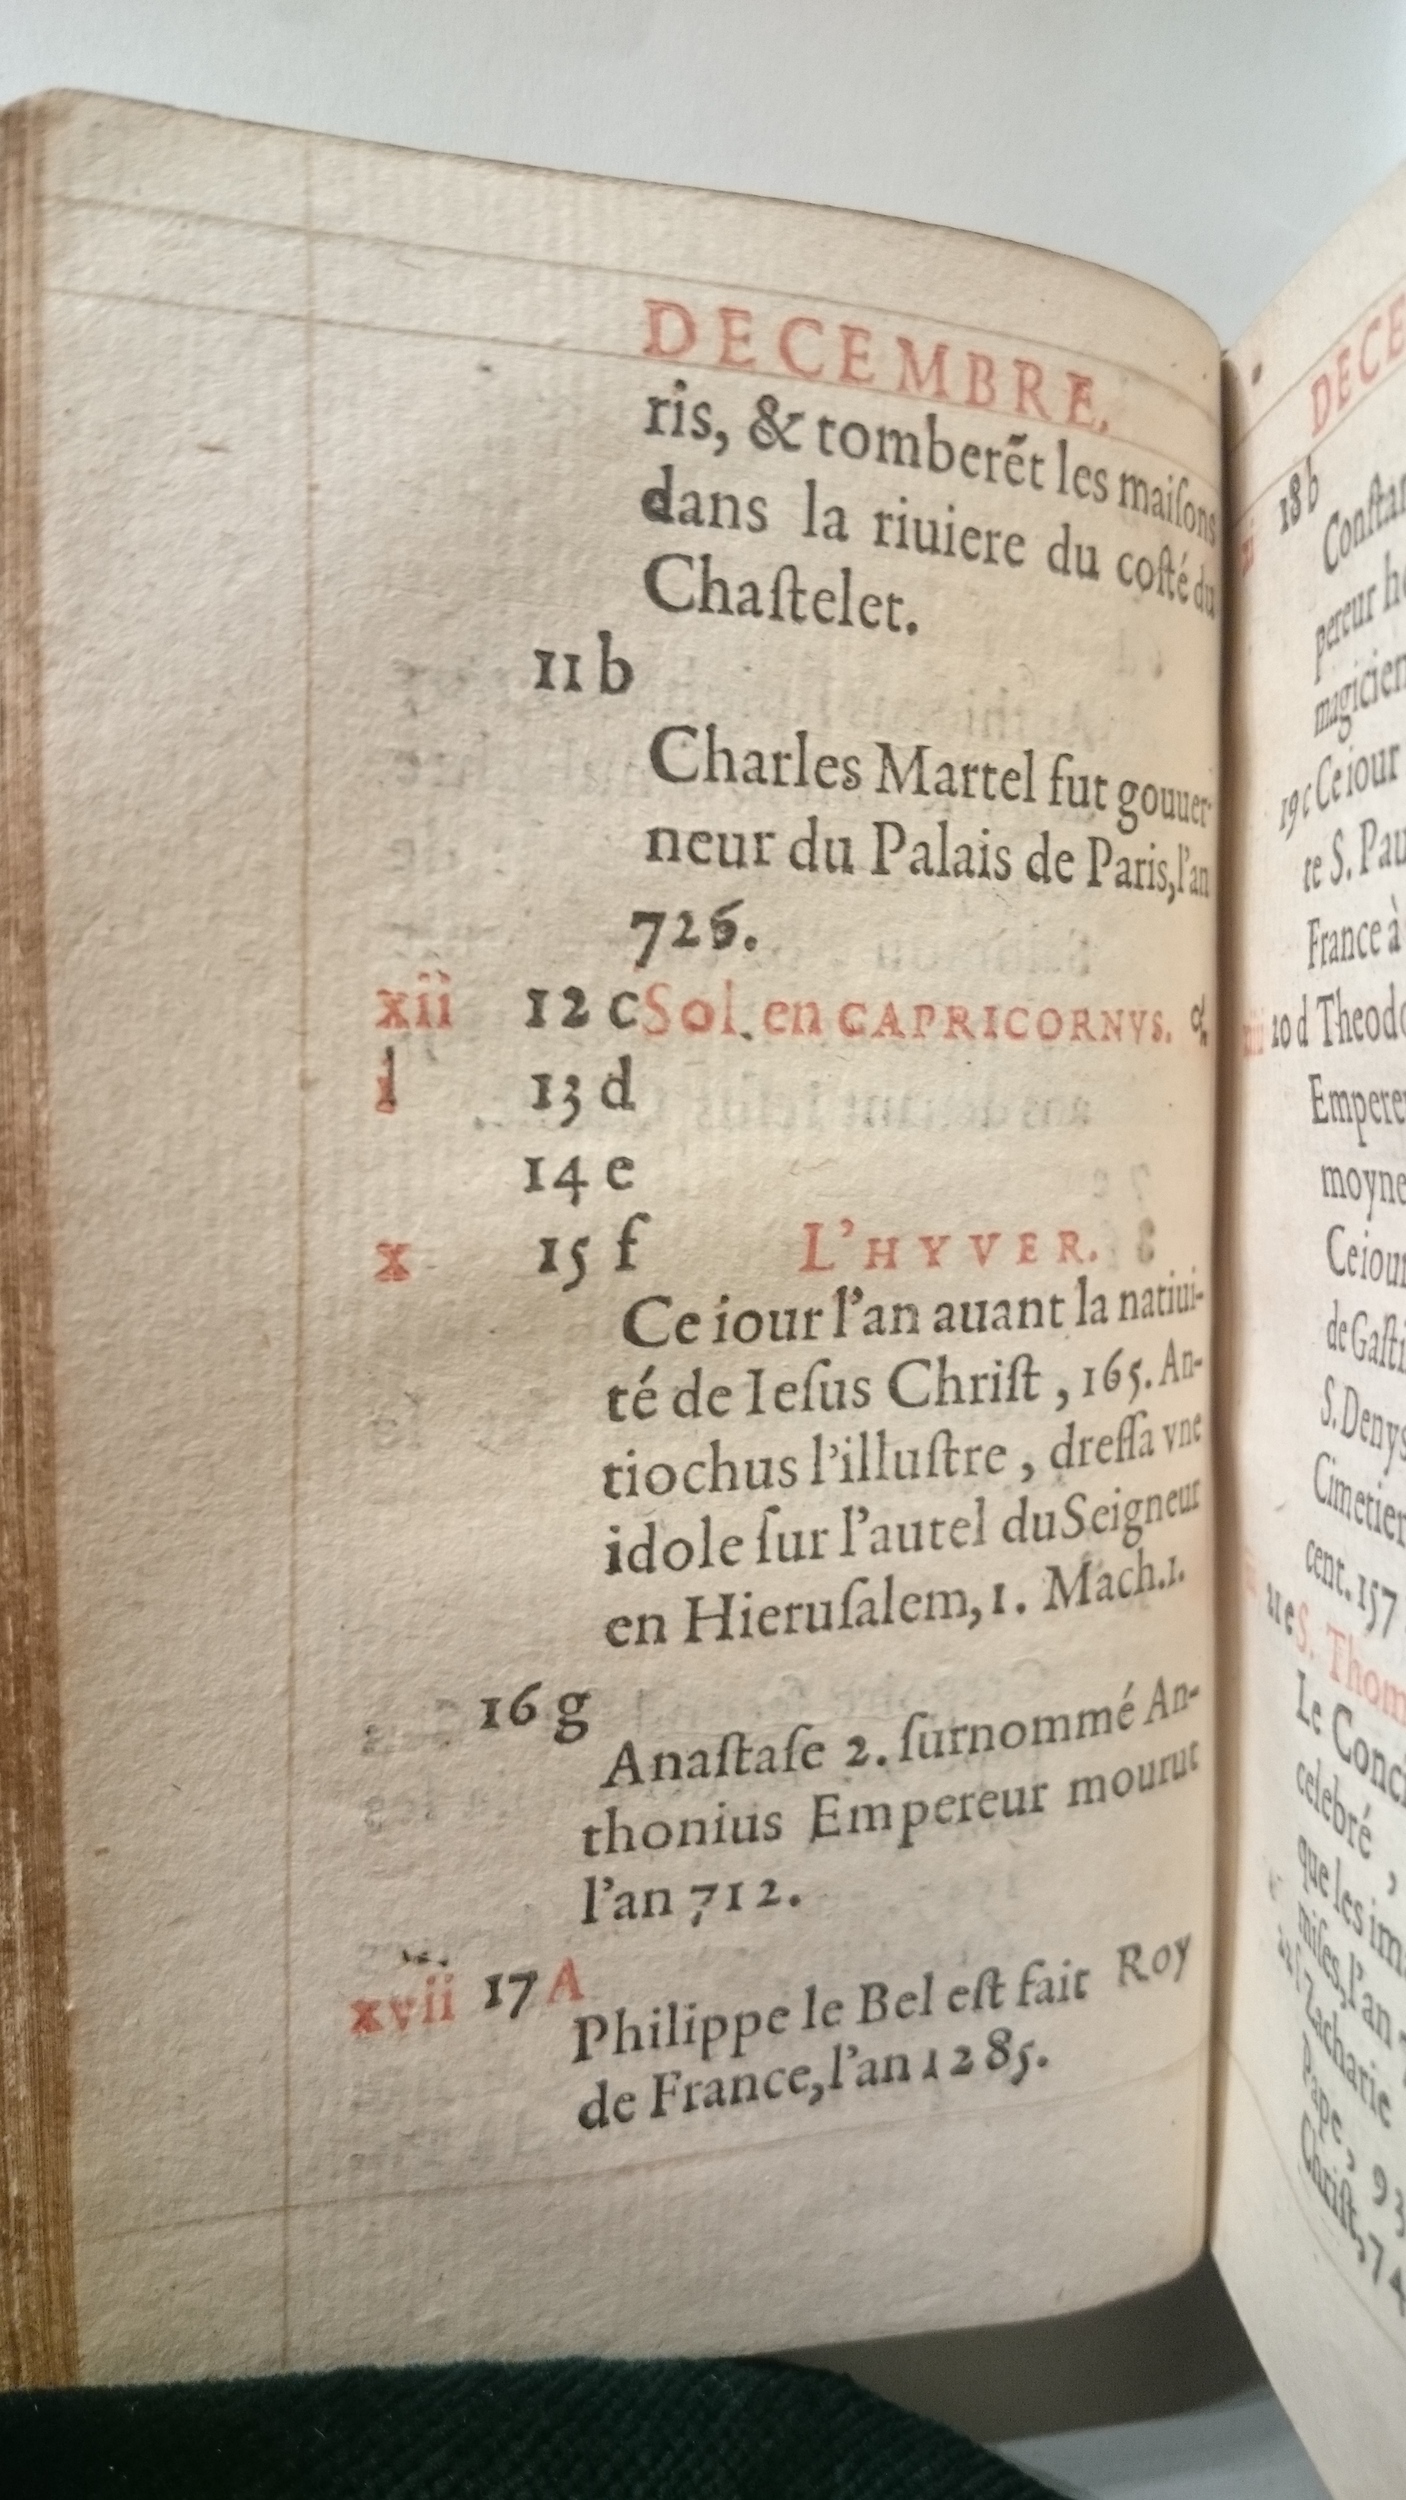 DECEMBRE.
ris, & tomberẽt les maiſons
dans la riuiere du coſté du
Chaſtelet.
11 b
Charles Martel fut gouuer-
neur du Palais de Paris, l'an
726.
xii 12 c Sol. en CAPRICORNVS.
i 13 d
14 e
x 15 f L'HYVER.
Ce iour l'an auant la natiui-
té de Ieſus Chriſt , 165. An-
tiochus l'illuſtre , dreſſa vne
idole ſur l'autel du Seigneur
en Hieruſalem, 1. Mach.1.
16 g
Anaſtaſe 2. ſurnommé An-
thonius Empereur mourut
l'an 712.
xvii 17 A
Philippe le Bel eſt fait Roy
de France, l'an 1285.
18 b
19 c Ce iour
te S.
France à
20 d
moyne
Ce iour
S. Denys
cent. 157
21 e S.
Le
celebré ,
que les
l'an
Zacharie
Pape , 93
Chriſt, 74